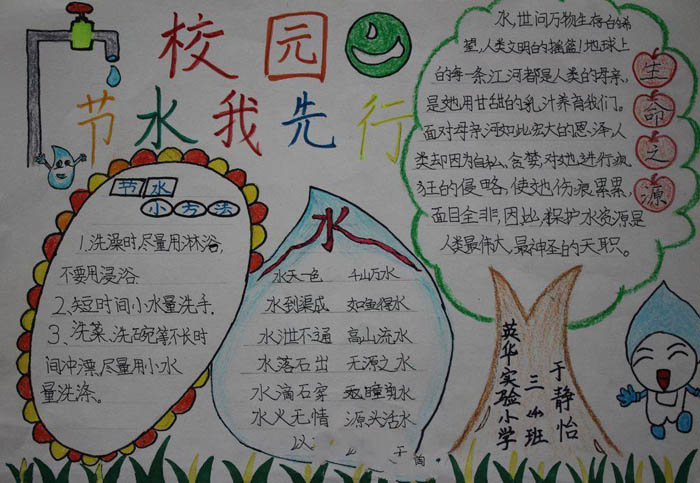 校园
节水我先行
节水
小方法
1.洗澡时,尽量用淋浴,
不要用浸浴.
2、短时间小水量洗手.
3、洗菜、洗碗等不长时
间冲漂,尽量用小水
量洗涤。
水
水天一色 千山万水
水到渠成 如鱼得水
水泄不通 高山流水
水落石出 无源之水
水滴石穿
水火无情 源头活水
水,世间万物生存
望,人类文明的摇篮!地球上
的每一条江河都是人类的母亲,
是她用甘甜的乳汁养育我们。
面对母亲河如此宏大的恩泽,人
类却因为自私、贪婪,对她进行疯
狂的侵略,使她伤痕累累,
面目全非,因此,保护水资源是
人类最伟大、最神圣的天职。
生命之源
英华实验小学
三
班
于静怡